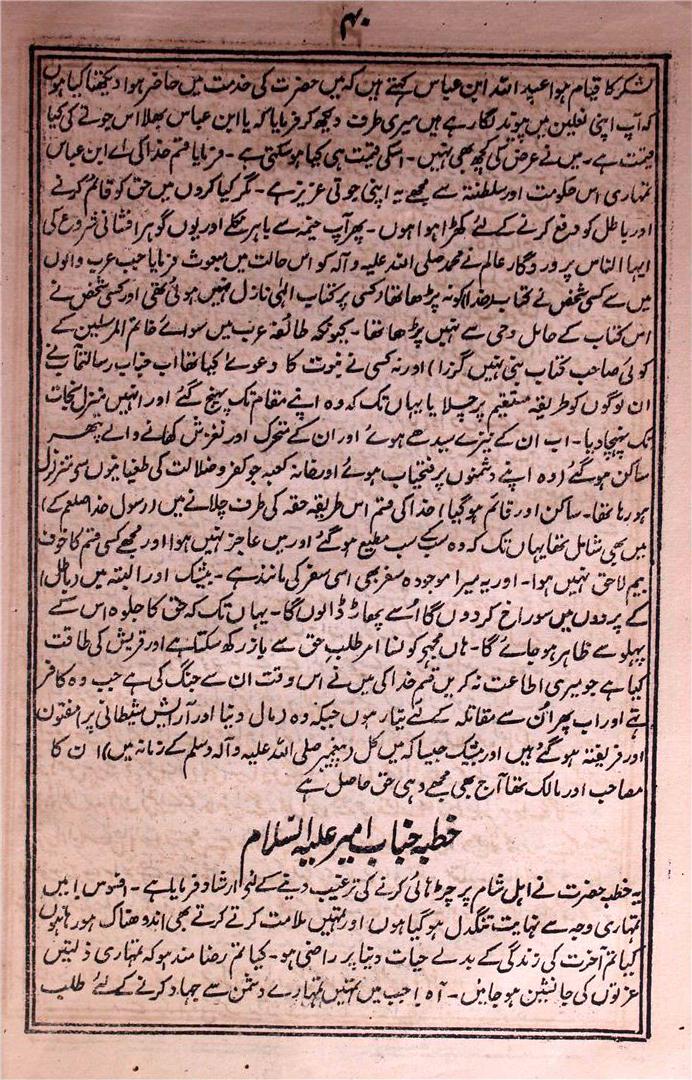 ۴۰
لشکر کا قیام ہوا عبد اللہ ابن عباس کہتے ہیں کہ میں حضرت کی خدمت میں حاضر ہوا دیکھتا کیا ہوں
کہ آپ اپنی نعلین میں پیوند لگا رہے ہیں میری طرف دیکھ کر فرمایا کہ یا ابن عباس بھلا اس جوتے کی کیا
قیمت ہے۔ میں نے عرض کی کچھ بھی نہیں۔ اسکی قیمت ہی کیا ہو سکتی ہے۔ فرمایا قسم خدا کی اے ابن عباس
تمہاری اس حکومت اور سلطنت سے مجھے یہ اپنی جوتی عزیز ہے۔ مگر کیا کروں میں حق کو قائم کرنے
اور باطل کو دفع کرنے کے لئے کھڑا ہوا ہوں۔ پھر آپ خیمہ سے باہر نکلے اور یوں گوہر افشانی شروع کی
ایہا الناس پروردگار عالم نے محمد صلی اللہ علیہ و آلہ کو اس حالت میں مبعوث فرمایا جب عرب والوں
میں سے کسی شخص نے کتاب (خدا) کو نہ پڑھا تھا (کسی پر کتاب الٰہی نازل نہیں ہوئی تھی اور کسی شخص نے
اس کتاب کے حامل وحی سے نہیں پڑھا تھا۔ کیونکہ طائفہ عرب میں سوائے خاتم المرسلین کے
کوئی صاحب کتاب نبی نہیں گزرا) اور نہ کسی نے نبوت کا دعوےٰ کیا تھا اب جناب رسالتمآب نے
ان لوگوں کو طریقہ مستقیم پر چلایا یہاں تک کہ وہ اپنے مقام تک پہنچ گئے اور انہیں منزل نجات
تک پہنچا دیا۔ اب ان کے نیزے سیدھے ہوئے اور ان کے متحرک اور لغزش کھانے والے پتھر
ساکن ہو گئے (وہ اپنے دشمنوں پر فتحیاب ہوئے اور خانہ کعبہ جو کفر و ضلالت کی طغیانیوں سے متزلزل
ہو رہا تھا۔ ساکن اور قائم ہو گیا) خدا کی قسم اس طریقہ حقہ کی طرف چلانے میں (رسول خدا صلعم کے)
میں بھی شامل تھا یہاں تک کہ وہ سب کے سب مطیع ہو گئے اور میں عاجز نہیں ہوا اور مجھے کسی قسم کا خوف
بیم لاحق نہیں ہوا۔ اور یہ میرا موجودہ سفر بھی اسی سفر کی مانند ہے۔ بیشک اور البتہ میں (باطل)
کے پردوں میں سوراخ کر دوں گا اُسے پھاڑ ڈالوں گا۔ یہاں تک کہ حق کا جلوہ اس کے
پہلو سے ظاہر ہو جائے گا۔ ہاں مجھکو کونسا امر طلب حق سے باز رکھ سکتا ہے اور قریش کی طاقت
کیا ہے جو میری اطاعت نہ کریں قسم خدا کی میں نے اس وقت ان سے جنگ کی ہے جب وہ کافر
تھے اور اب پھر اُن سے مقاتلہ کے لئے تیار ہوں جبکہ وہ (مال دنیا اور آرایش شیطانی پر) مفتون
اور فریفتہ ہو گئے ہیں اور بیشک جیسا کہ میں کل (پیغمبر صلی اللہ علیہ و آلہ وسلم کے زمانہ میں) ان کا
مصاحب اور مالک تھا آج بھی مجھے وہی حق حاصل ہے
خطبہ جناب امیر علیہ السلام
یہ خطبہ حضرت نے اہل شام پر چڑھائی کرنے کی ترغیب دینے کے لئے ارشاد فرمایا ہے۔ افسوس! میں
تمہاری وجہ سے نہایت تنگدل ہو گیا ہوں اور تمہیں ملامت کرتے کرتے بھی اندوھناک ہو رہا ہوں
کیا تم آخرت کی زندگی کے بدلے حیات دنیا پر راضی ہو۔ کیا تم رضا مند ہو کہ تمہاری ذلتیں
عزتوں کی جانشین ہو جائیں۔ آہ! جب میں تمہیں تمہارے دشمن سے جہاد کرنے کے لئے طلب